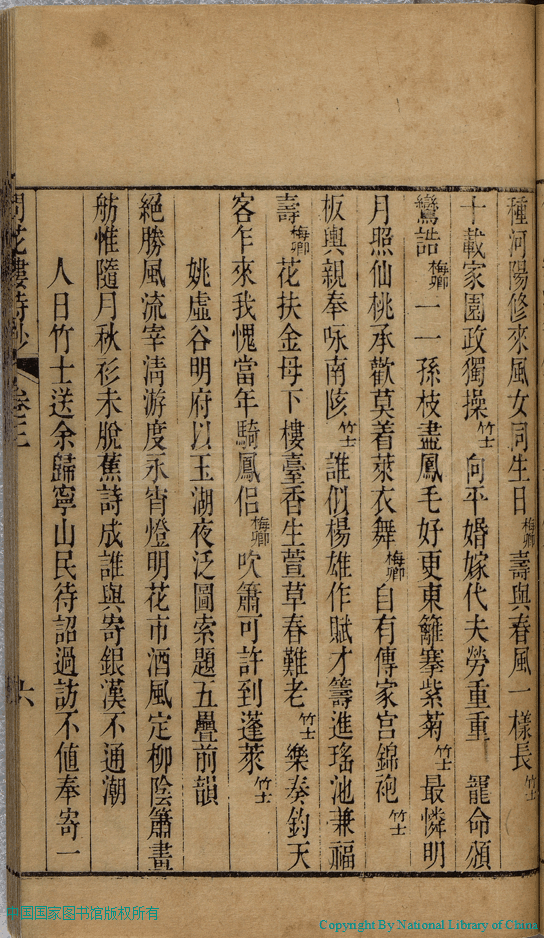 種河陽修來風女同生日梅卿壽與春風一樣長竹士
十載家園政獨操竹士向平婚嫁代夫勞重重 寵命頒
鸞誥梅卿一一孫枝盡鳳毛好更東籬搴紫菊竹士最憐明
月照仙桃承歡莫着萊衣舞梅卿自有傳家宮錦袍竹士
板輿親奉咏南陔竹士誰似楊雄作賦才籌進瑤池兼福
壽梅卿花扶金母下樓臺香生萱草春難老竹士樂奏鈞天
客年來我愧當年騎鳳侣梅卿吹簫可許到蓬萊竹士
姚虛谷明府以玉湖夜泛圖索題五疊前韻
絕勝風流宰淸游度永宵燈明花市酒風定柳陰簫畫
舫惟隨月秋衫未脫蕉詩成誰與寄銀漢不通潮
人日竹士送余歸寧山民待詔過訪不値奉寄一
間花樓詩抄 卷三 六
中国国家图书馆版权所有
Copyright By National Library of China